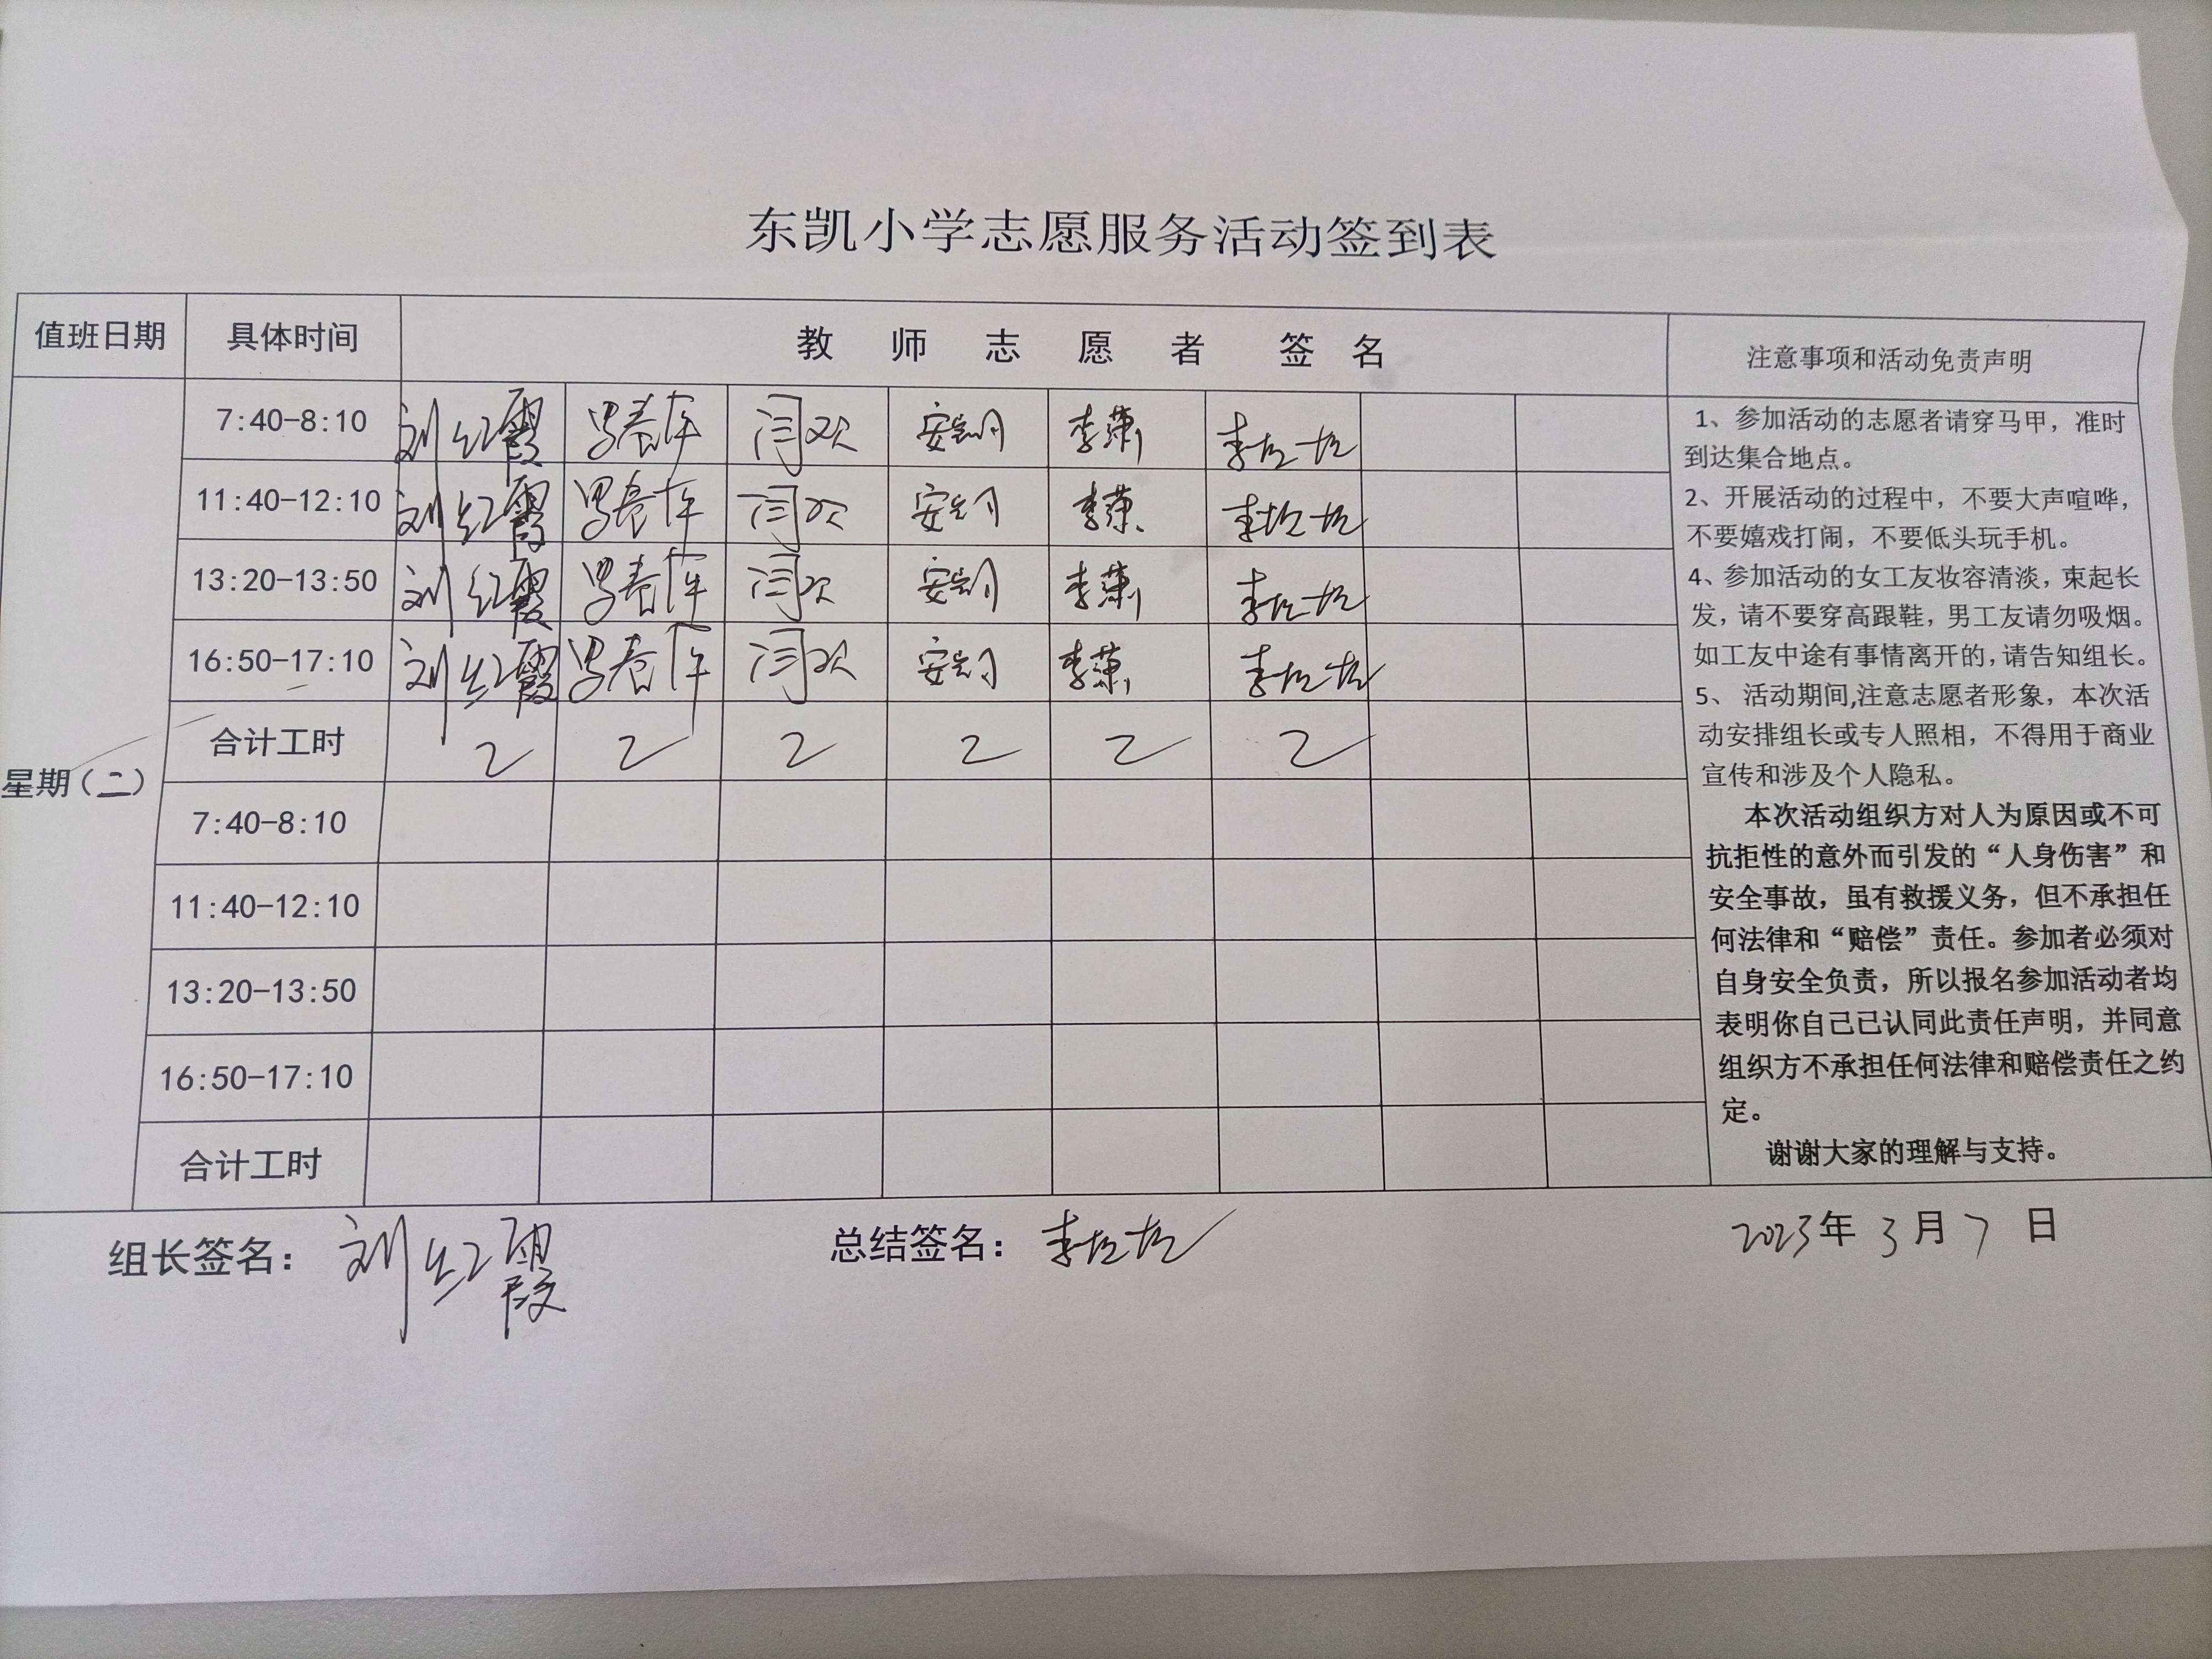 东凯小学志愿服务活动签到表
值班日期 具体时间 教师志愿者签名 注意事项和活动免责声明
星期(二)
7:40-8:10 刘红霞 闫欢 李萧
11:40-12:10 刘红霞 闫欢 李萧
13:20-13:50 刘红霞 闫欢 李萧
16:50-17:10 刘红霞 闫欢 李萧
合计工时 2 2 2 2 2 2
7:40-8:10
11:40-12:10
13:20-13:50
16:50-17:10
合计工时
1、参加活动的志愿者请穿马甲，准时
到达集合地点。
2、开展活动的过程中，不要大声喧哗，
不要嬉戏打闹，不要低头玩手机。
4、参加活动的女工友妆容清淡，束起长
发，请不要穿高跟鞋，男工友请勿吸烟。
如工友中途有事情离开的，请告知组长。
5、 活动期间,注意志愿者形象，本次活
动安排组长或专人照相，不得用于商业
宣传和涉及个人隐私。
本次活动组织方对人为原因或不可
抗拒性的意外而引发的“人身伤害”和
安全事故，虽有救援义务，但不承担任
何法律和“赔偿”责任。参加者必须对
自身安全负责，所以报名参加活动者均
表明你自己已认同此责任声明，并同意
组织方不承担任何法律和赔偿责任之约
定。
谢谢大家的理解与支持。
组长签名：刘红霞 总结签名： 2023年3月7日